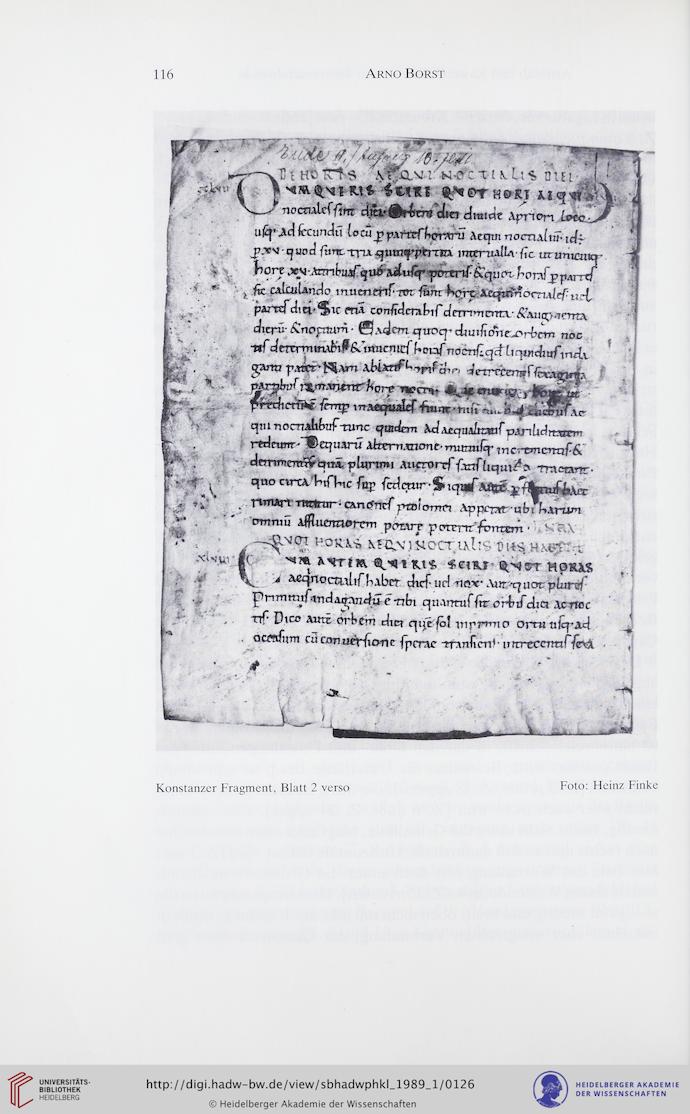 116
ARNO BORST
DE HORIS AEQVINOCTIALIS DIEI
VM QVERIS SCIRE QVOT HORĘ AEQVI
noctiales sint diei. Orbem diei diuide a priori loco.
usq; ad secundū locū p partes horarū aequinoctialiū. id:
p xv. quod sunt tria interualla. sic ut unicuiq;
horę xv. attribuas quo adusq; poteris. & quot horas p partes
sic calculando inueneris. tot sunt horę aequinoctiales. uel
partes diei. Sic etiā considerabis detrimenta. & augmenta
dierū. & noctium. Eadem quoq; diuisione orbem noc
tis determinabis. & inuenies horas noctis. qd liquidius inda
gantibus patet. Nam ablatis horis diei de trecentis sexaginta
partibus remanent horę noctis.
semp inaequales fiunt. nisi ae
qui noctialibus. tunc quidem ad aequalitatis parilitatem
redeunt. De quarū alternatione. mutuisq; incrementis. &
detrimentis quia plurimi auctores satis liquido tractant.
quo circa his hic sup sedetur. Siquis autē
rimari nititur. canones ptolomei appetat. ubi harum
omniū affluentiorem potare poterit fontem.
QVOT HORAS AEQVINOCTIALIS DIES HABEAT
xlviii
VM AVTEM QVERIS SCIRE QVOT HORAS
aeqnoctialis habet dies. uel nox. aut quot plures.
Primitus indagandū ē tibi quantus sit orbis diei ac noc
tis. Dico autē orbem diei quē sol in primo ortu usq; ad
occasum cū conuersione sperae transient. in trecentis sexa
Konstanzer Fragment, Blatt 2 verso
Foto: Heinz Finke
UNIVERSITÄTS-
BIBLIOTHEK
HEIDELBERG
http://digi.hadw-bw.de/view/sbhadwphkl_1989_1/0126
© Heidelberger Akademie der Wissenschaften
HEIDELBERGER AKADEMIE
DER WISSENSCHAFTEN